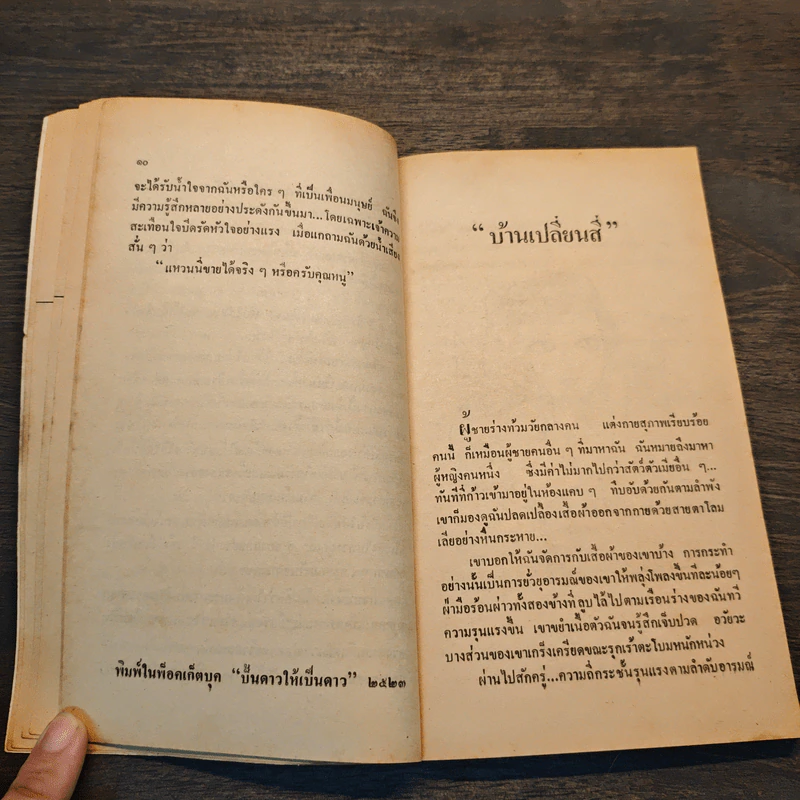 ๑๐
จะได้รับน้ำใจจากฉันหรือใคร ๆ ที่เป็นเพื่อนมนุษย์ ฉันจึง
มีความรู้สึกหลายอย่างประดังกันขึ้นมา...โดยเฉพาะเจ้าความ
สะเทือนใจบีดรัดหัวใจอย่างแรง เมื่อแกถามฉันด้วยน้ำเสียง
สั่น ๆ ว่า
“แหวนนี่ขายได้จริง ๆ หรือครับคุณหนู”
พิมพ์ในพ็อคเก็ตบุค “ปั้นดาวให้เป็นดาว” ๒๕๒๓
“บ้านเปลี่ยนสี”
ผู้ชายร่างท้วมวัยกลางคน แต่งกายสุภาพเรียบร้อย
คนนี้ ก็เหมือนผู้ชายคนอื่น ๆ ที่มาหาฉัน ฉันหมายถึงมาหา
ผู้หญิงคนหนึ่ง ซึ่งมีค่าไม่มากไปกว่าสัตว์ตัวเมียอื่น ๆ...
ทันทีที่ก้าวเข้ามาอยู่ในห้องแคบ ๆ ทึบอับด้วยกันตามลำพัง
เขาก็มองดูฉันปลดเปลื้องเสื้อผ้าออกจากกายด้วยสายตาโลม
เลียอย่างหื่นกระหาย...
เขาบอกให้ฉันจัดการกับเสื้อผ้าของเขาบ้าง การกระทำ
อย่างนั้นเป็นการยั่วยุอารมณ์ของเขาให้พลุ่งโพลงขึ้นทีละน้อยๆ
ฝ่ามือร้อนผ่าวทั้งสองข้างที่ลูบไล้ไปตามเรือนร่างของฉันทวี
ความรุนแรงขึ้น เขาขยำเนื้อตัวฉันจนรู้สึกเจ็บปวด อวัยวะ
บางส่วนของเขาเกร็งเครียดขณะรุกเร้าตะโบมหนักหน่วง
ผ่านไปสักครู่...ความถี่กระชั้นรุนแรงตามลำดับอารมณ์